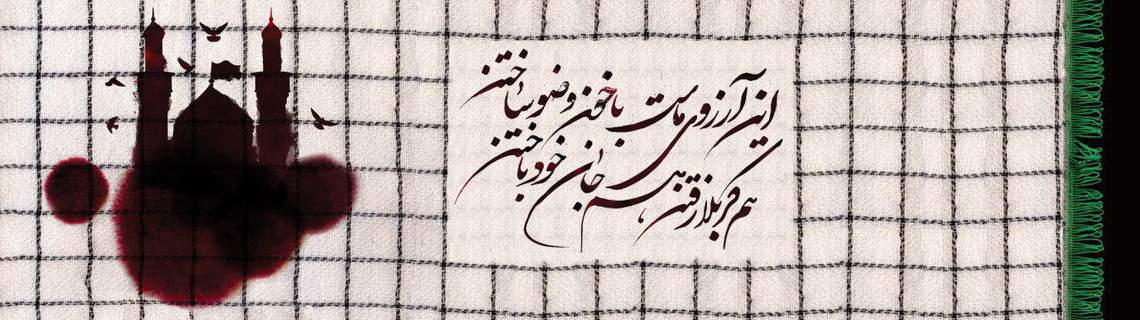 این آرزوی ماست با خون وضو ساختن
هم کربلا رفتن، هم جان خود باختن